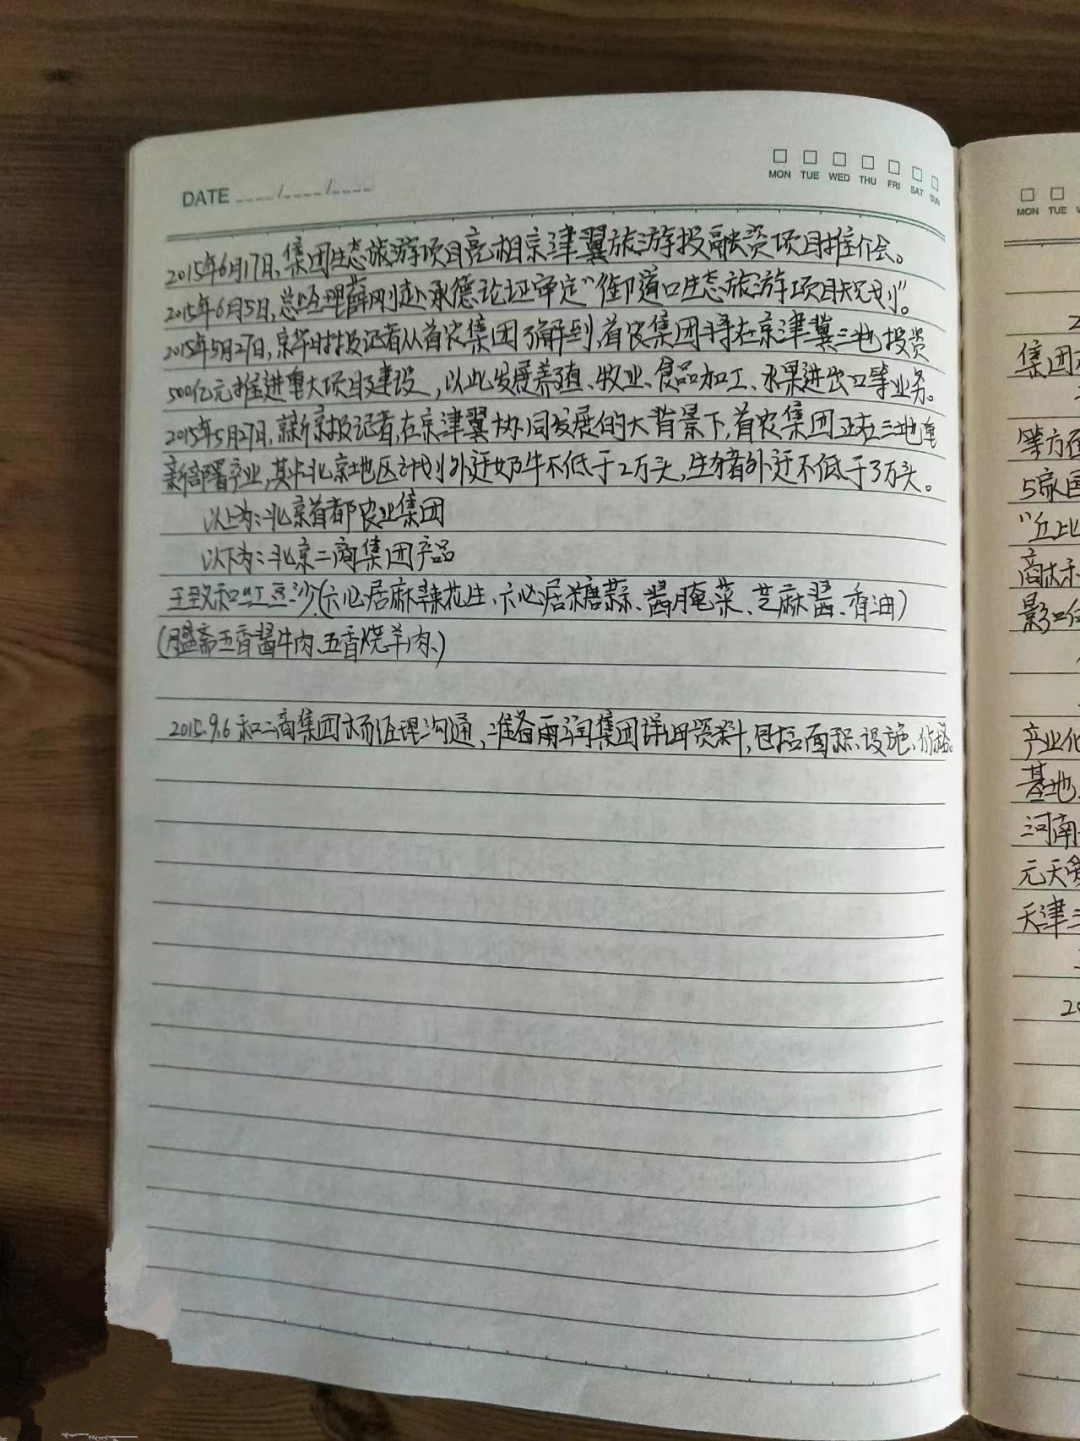 DATE ____/____/____
MON TUE WED THU FRI SAT SUN
2015年6月17日,集团生态旅游项目亮相京津翼旅游投融资项目推介会。
2015年6月5日,总经理薛刚赴承德论证审定"御道口生态旅游项目规划"。
2015年5月27日,京华时报记者从首农集团了解到,首农集团将在京津冀三地投资
500亿元推进重大项目建设,以此发展养殖、牧业、食品加工、水果进出口等业务。
2015年5月27日,新京报记者,在京津翼协同发展的大背景下,首农集团正在三地重
新部署产业,其中北京地区计划外迁奶牛不低于2万头,生猪外迁不低于3万头。
以上为:北京首都农业集团
以下为:北京二商集团产品
王致和红豆沙(六必居麻辣花生、六必居糖蒜、酱腌菜、芝麻酱、香油)
(月盛斋五香酱牛肉、五香烧羊肉、)
2015.9.6 和二商集团杨经理沟通,准备雨润集团详细资料,包括面积、设施、价格。
MON TUE
集团
等方
5家国
"丘北
商
影
产业化
基地
河南
元天
天津三